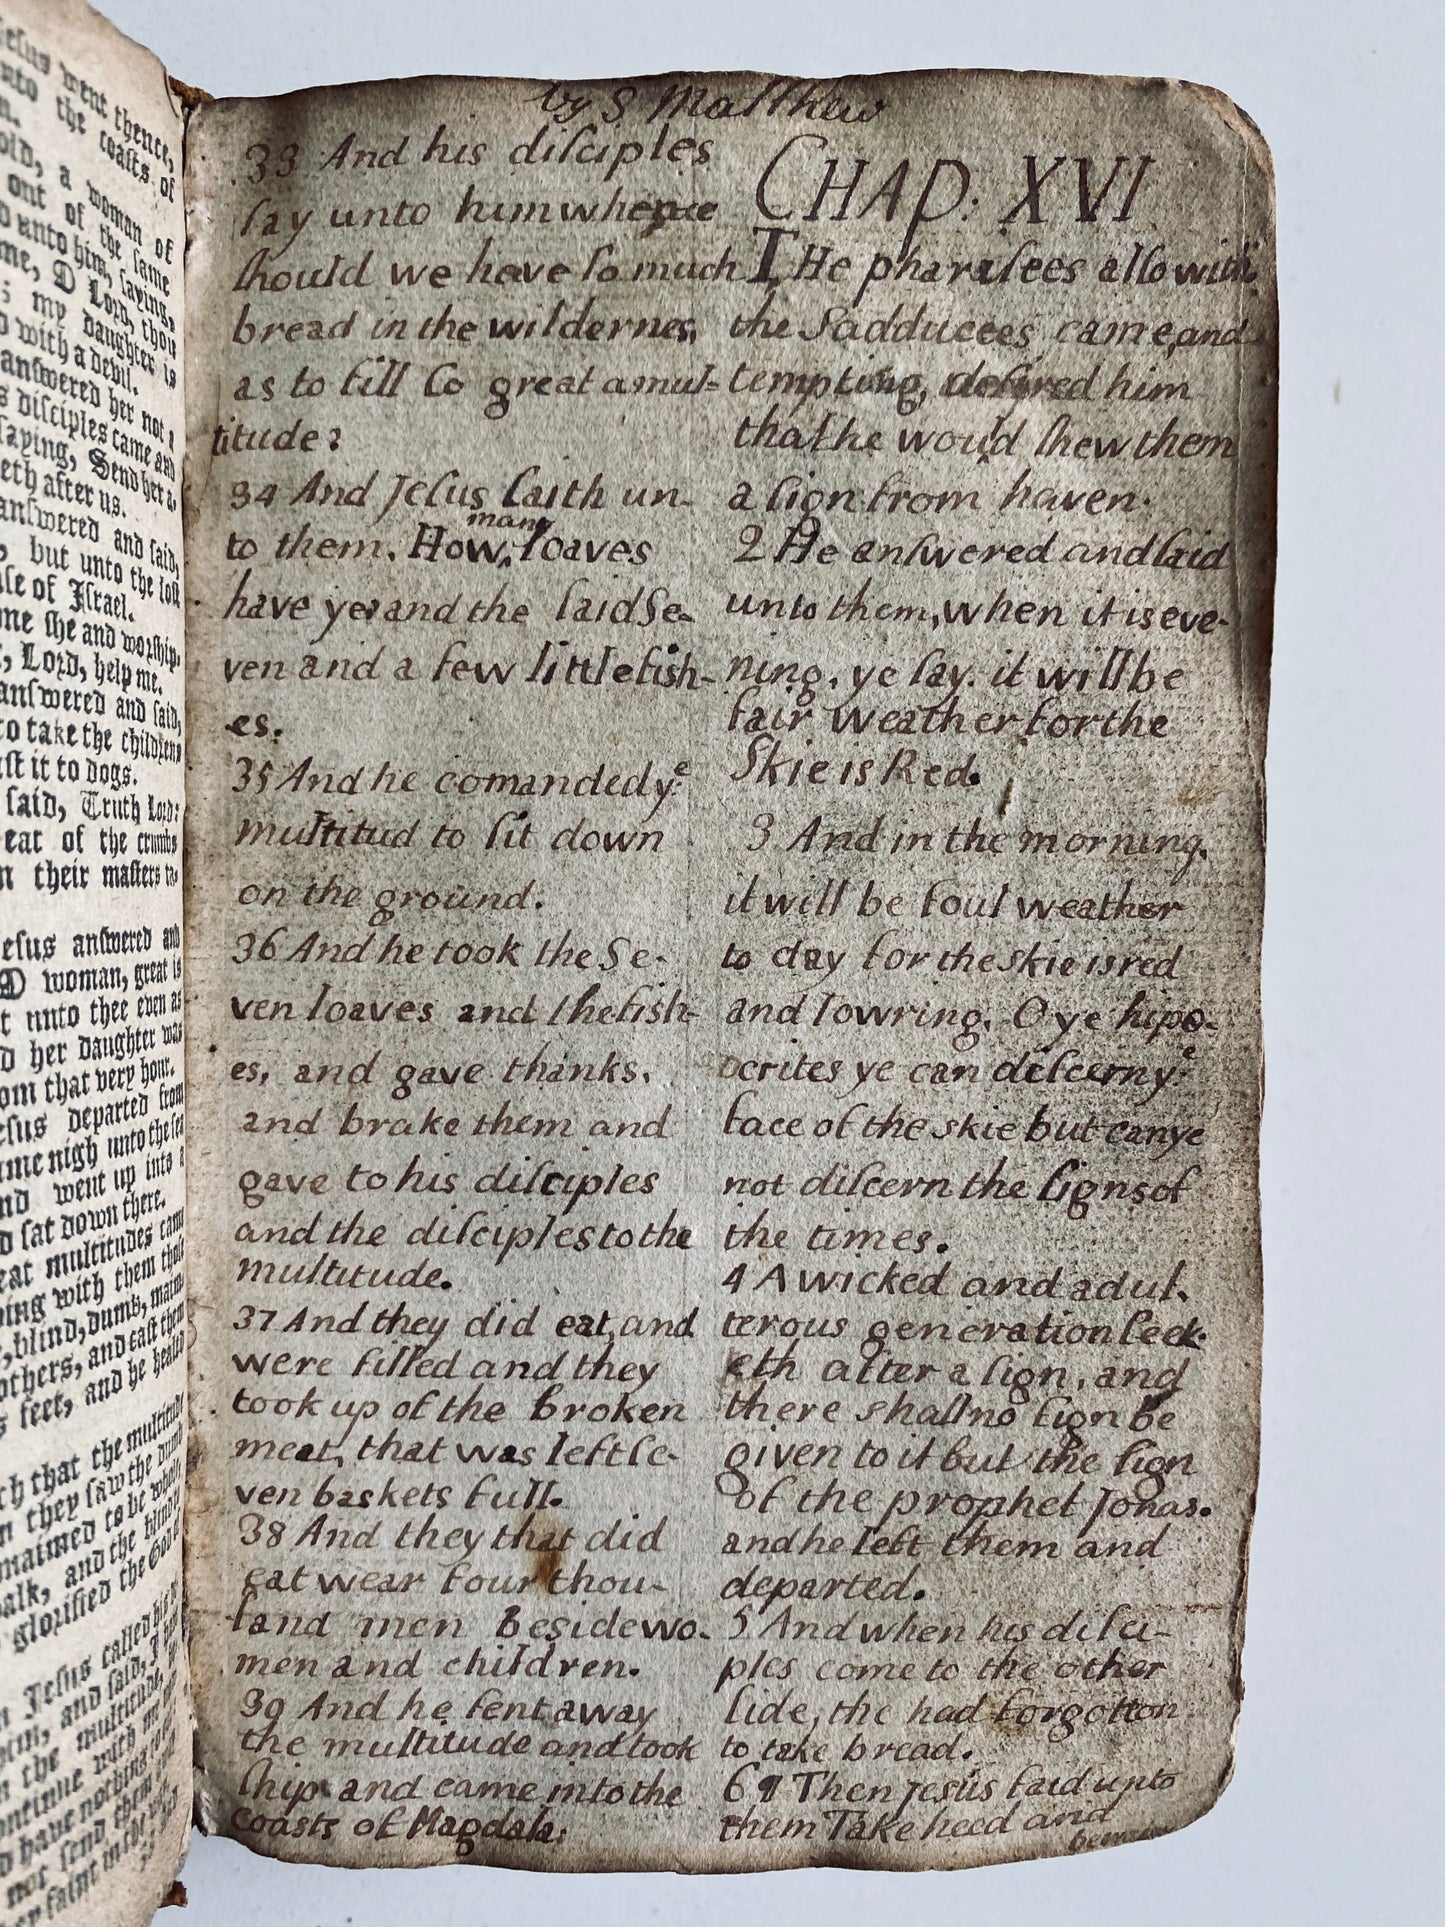 esus went thence,
nto the coasts of
n.
old, a woman of
out of the same
d unto him, saying,
me, O Lord, thou
my daughter is
d with a devil.
answered her not a
s disciples came and
saying, Send her a-
eth after us.
answered and said,
, but unto the lost
se of Israel.
me she and worship-
, Lord, help me.
answered and said,
to take the childrens
ast it to dogs.
said, Truth Lord:
eat of the crumbs
m their masters ta-
esus answered and
O woman, great is
t unto thee even as
d her daughter was
om that very hour.
esus departed from
ame nigh unto the sea
nd went up into a
d sat down there.
eat multitudes came
ing with them those
, blind, dumb, maim-
others, and cast them
s feet, and he healed
ch that the multitude
n they saw the dumb
maimed to be whole,
alk, and the blind
glorified the God of
Jesus called his
and said, I
the multitude,
ontinue with me
d have nothing to
not send them
ey faint in the
by S Matthew
33 And his diſciples
ſay unto him whence
ſhould we have ſo much
bread in the wildernes,
as to fill ſo great a mul-
titude?
34 And Jeſus ſaith un-
to them. How many loaves
have ye and the ſaid Se-
ven and a few little fish-
es.
35 And he comanded yͤ
multitud to ſit down
on the ground.
36 And he took the Se-
ven loaves and the fish-
es, and gave thanks,
and brake them and
gave to his diſciples
and the diſciples to the
multitude.
37 And they did eat, and
were filled and they
took up of the broken
meat, that was left ſe-
ven baskets full.
38 And they that did
eat wear four thou-
ſand men Beside wo-
men and children.
39 And he ſent away
the multitude and took
ſhip and came into the
coasts of Magdala:
CHAP: XVI
THe phariſees alſo with
the Sadducees came, and
tempting, deſired him
that he would ſhew them
a ſign from haven.
2 He anſwered and ſaid
unto them, when it is eve-
ning, ye ſay. it will be
fair weather for the
Skie is Red.
3 And in the morning.
it will be foul weather
to day for the skie is red
and lowring. O ye hipo-
ocrites ye can diſcern yͤ
face of the skie but can ye
not diſcern the ſigns of
the times.
4 A wicked and adul-
terous generation ſeek-
eth after a ſign, and
there shall no ſign be
given to it but the ſign
of the prophet Jonas.
and he left them and
departed.
5 And when his diſci-
ples come to the other
ſide, the had forgotton
to take bread.
6 ¶ Then Jesus ſaid unto
them Take heed and